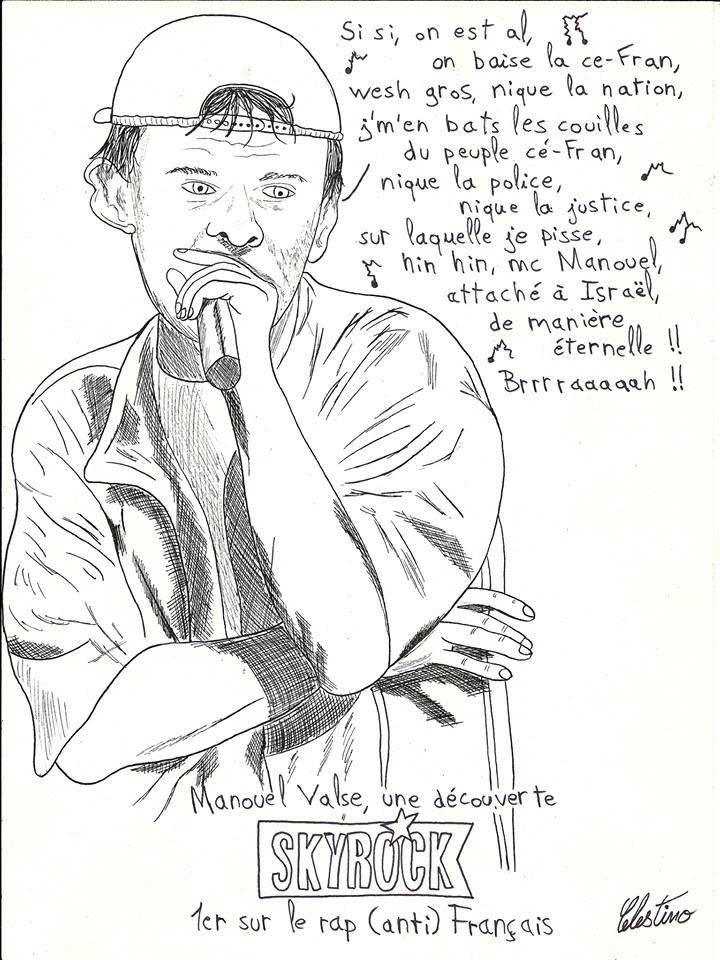 Si si, on est al,
on baise la ce-Fran,
wesh gros, nique la nation,
j'm'en bats les couilles
du peuple cé-Fran,
nique la police,
nique la justice,
sur laquelle je pisse,
hin hin, mc Manouel,
attaché à Israël,
de manière
éternelle !!
Brrrraaaaah !!
Manouel Valse, une découverte
SKYROCK
1er sur le rap (anti) Français
Celestino